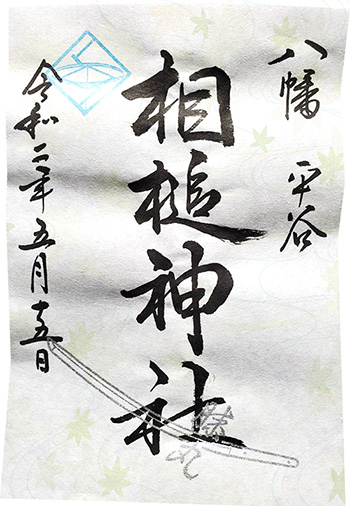 八幡 平谷
相槌神社
令和二年五月十五日